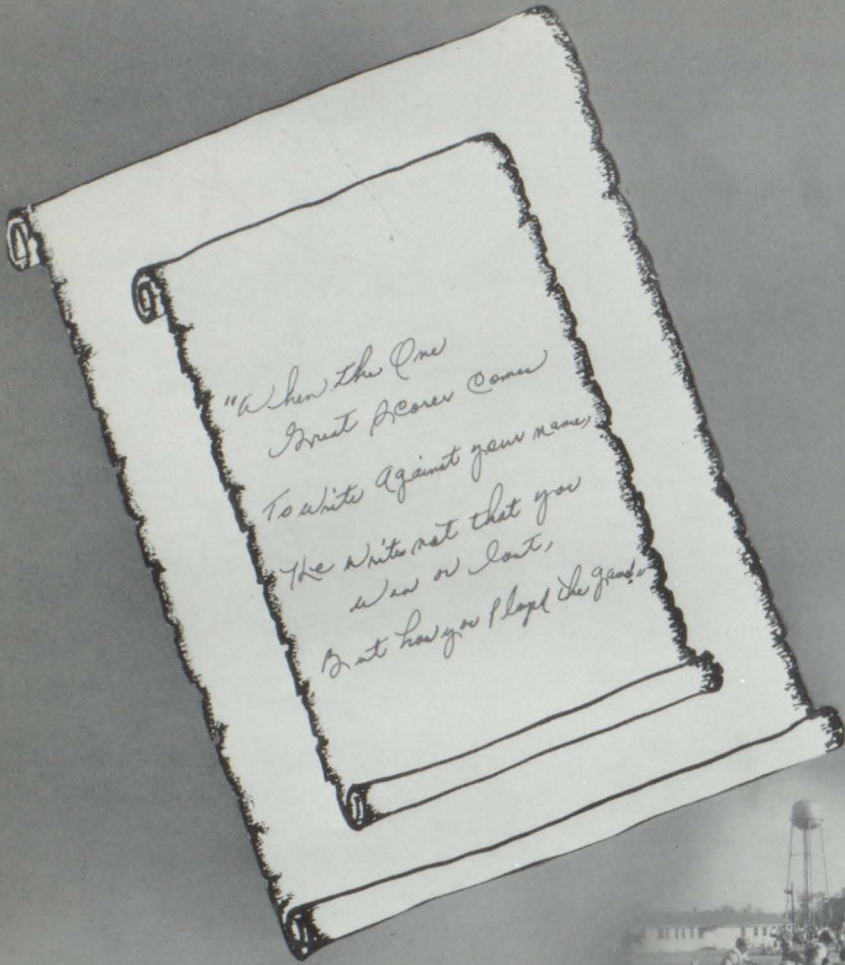 "When the One
Great Scorer Comes
To write Against your name,
He writes not that you
won or lost,
But how you Played the game."